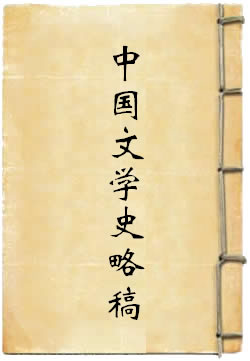 中国文学史略稿